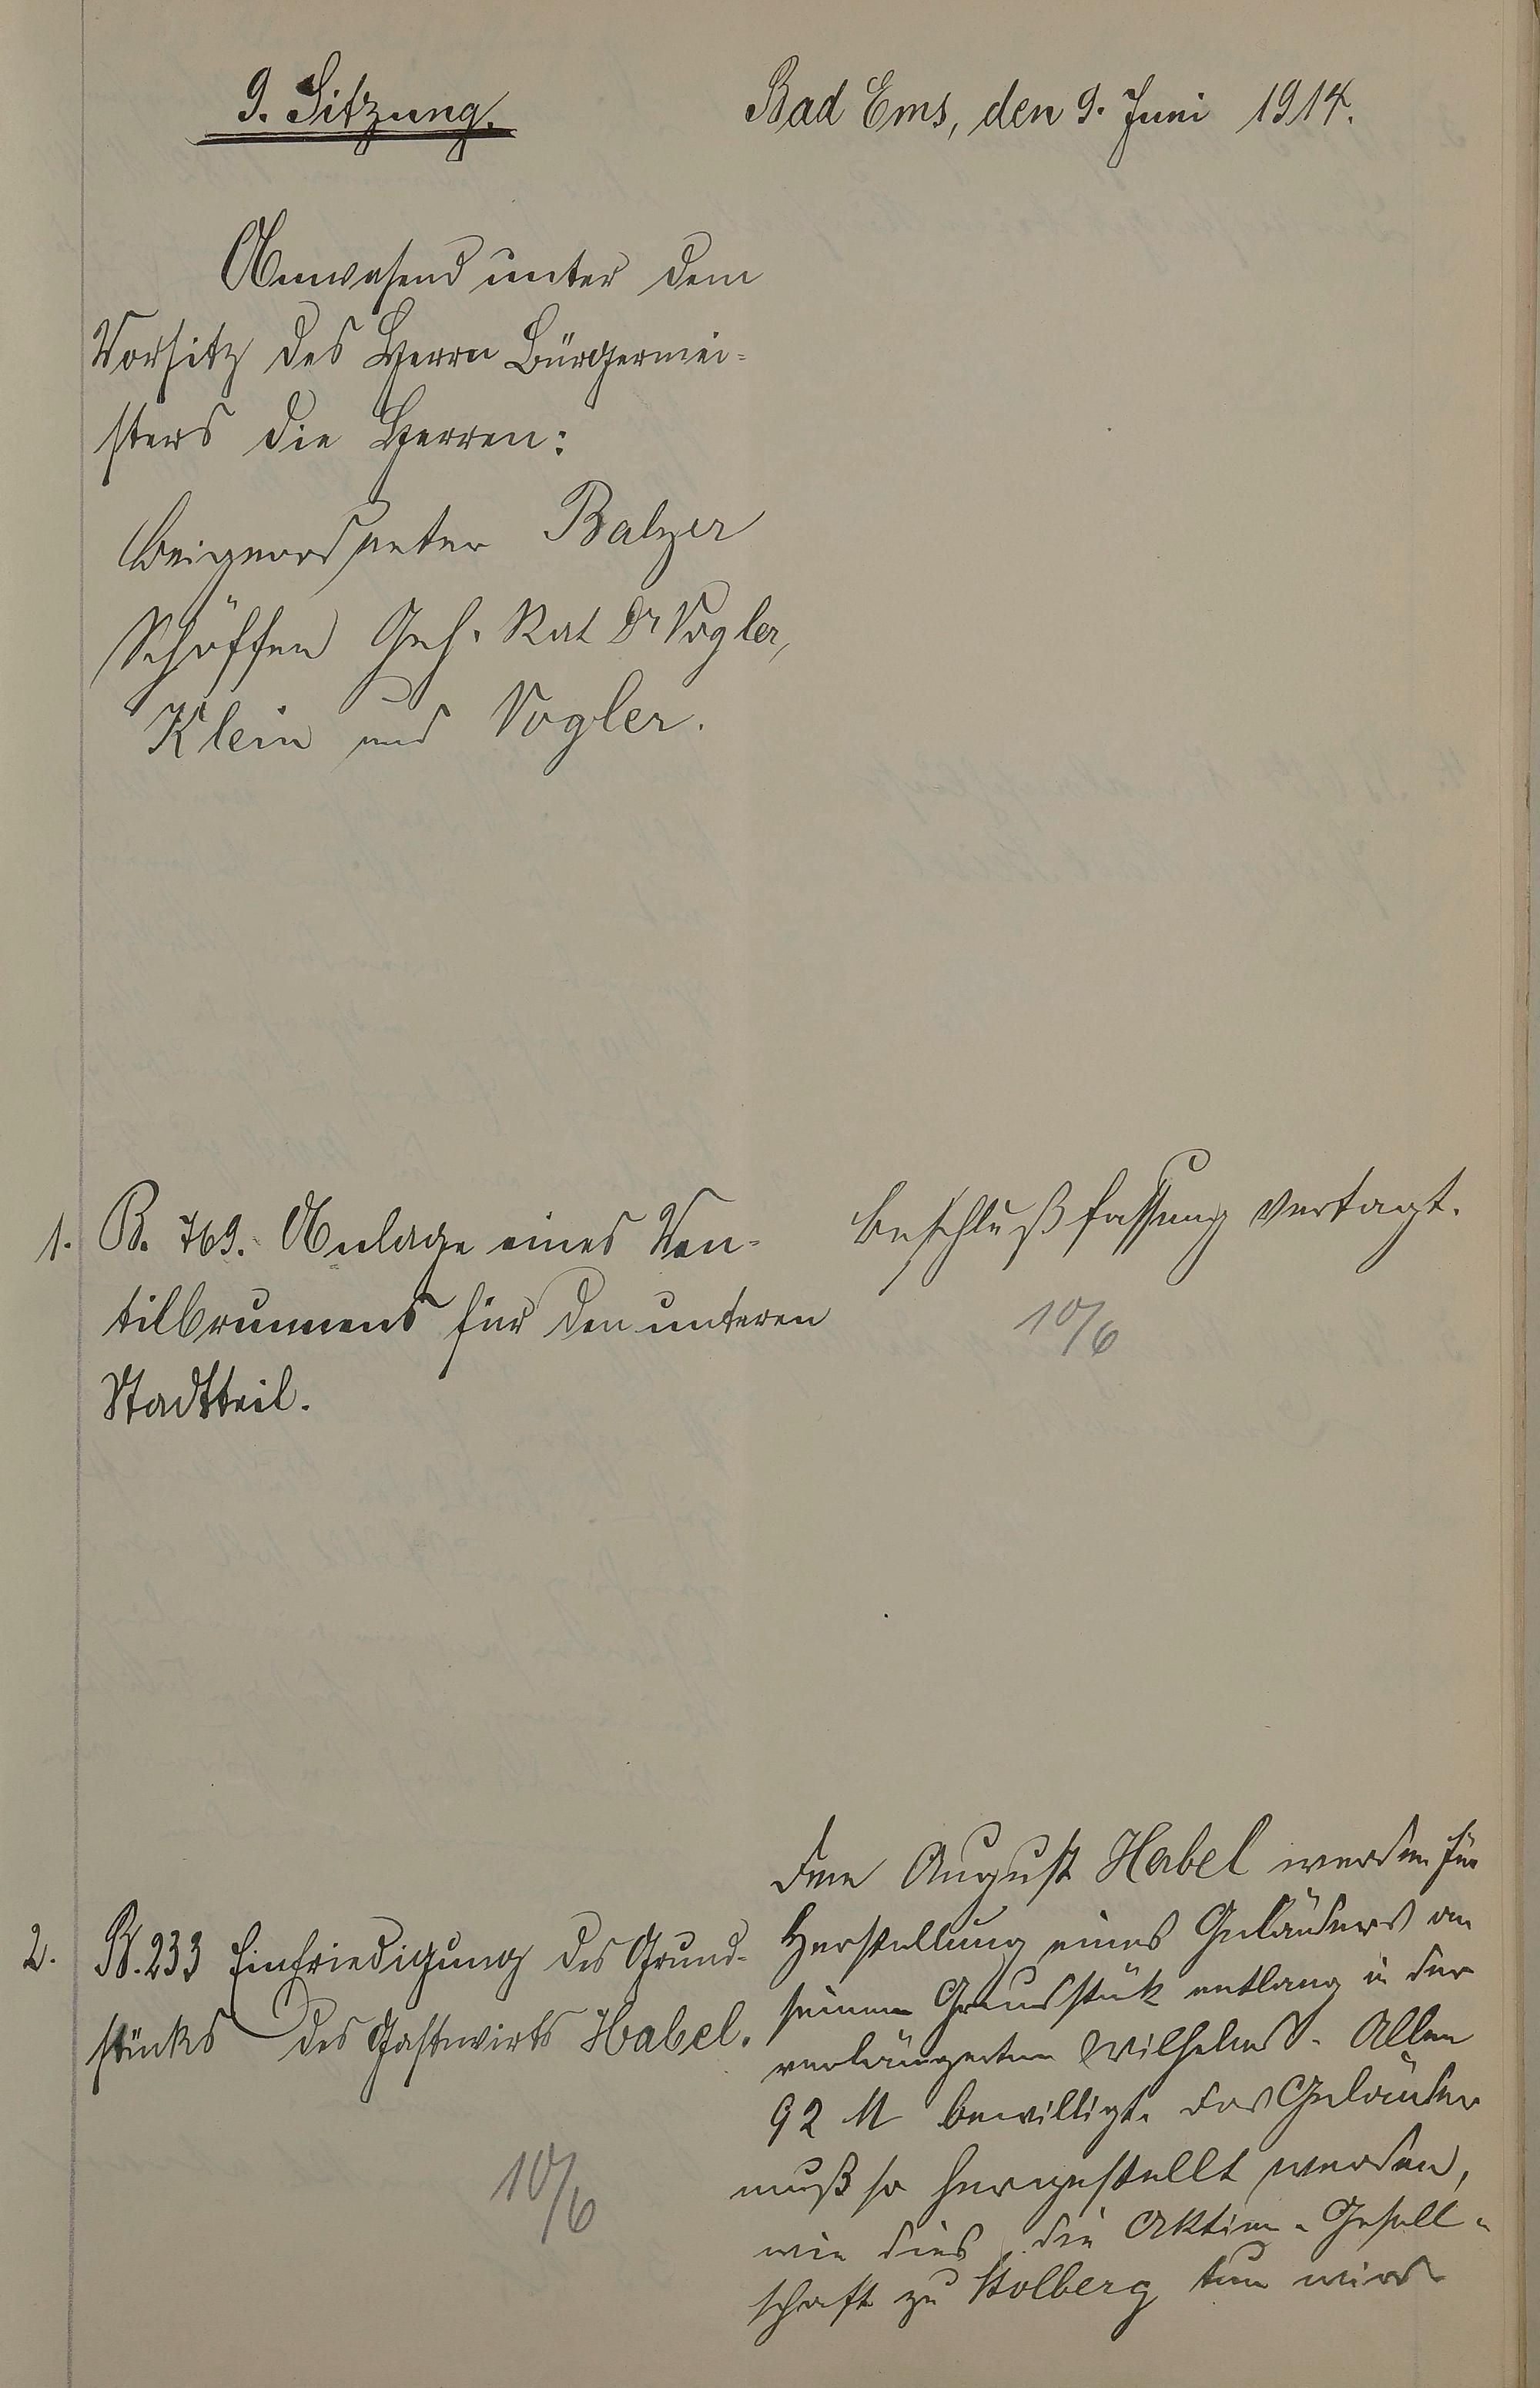 9. Sitzung.
Bad Ems, den 9. Juni 1914.
Anwesend unter dem
Vorsitz des Herrn Bürgermei-
sters die Herren:
Beigeordneter Balzer
Schöffen Geh. Rat Dr Vogler,
Klein und Vogler.
1. B. 769. Anlage eines Ven-
tilbrunnens für den unteren
Stadtteil.
Beschlußfassung vertagt.
10/6
2. B. 233 Einfriedigung des Grund-
stücks des Gastwirts Habel.
10/6
Dem August Habel werden für
Herstellung eines Geländers an
seinem Grundstück entlang in der
verlängerten Wilhelms-Allee
92 M bewilligt. Das Geländer
muß so hergestellt werden,
wie dies die Aktien-Gesell-
schaft zu Stolberg tun wird